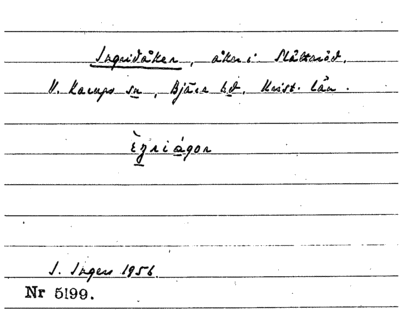 Ingridåker, åker i Slättaröd,
V. Karups sn, Bjäre hd, Krist. län.
Èŋriågor
I. Ingers 1956.
Nr 5199.